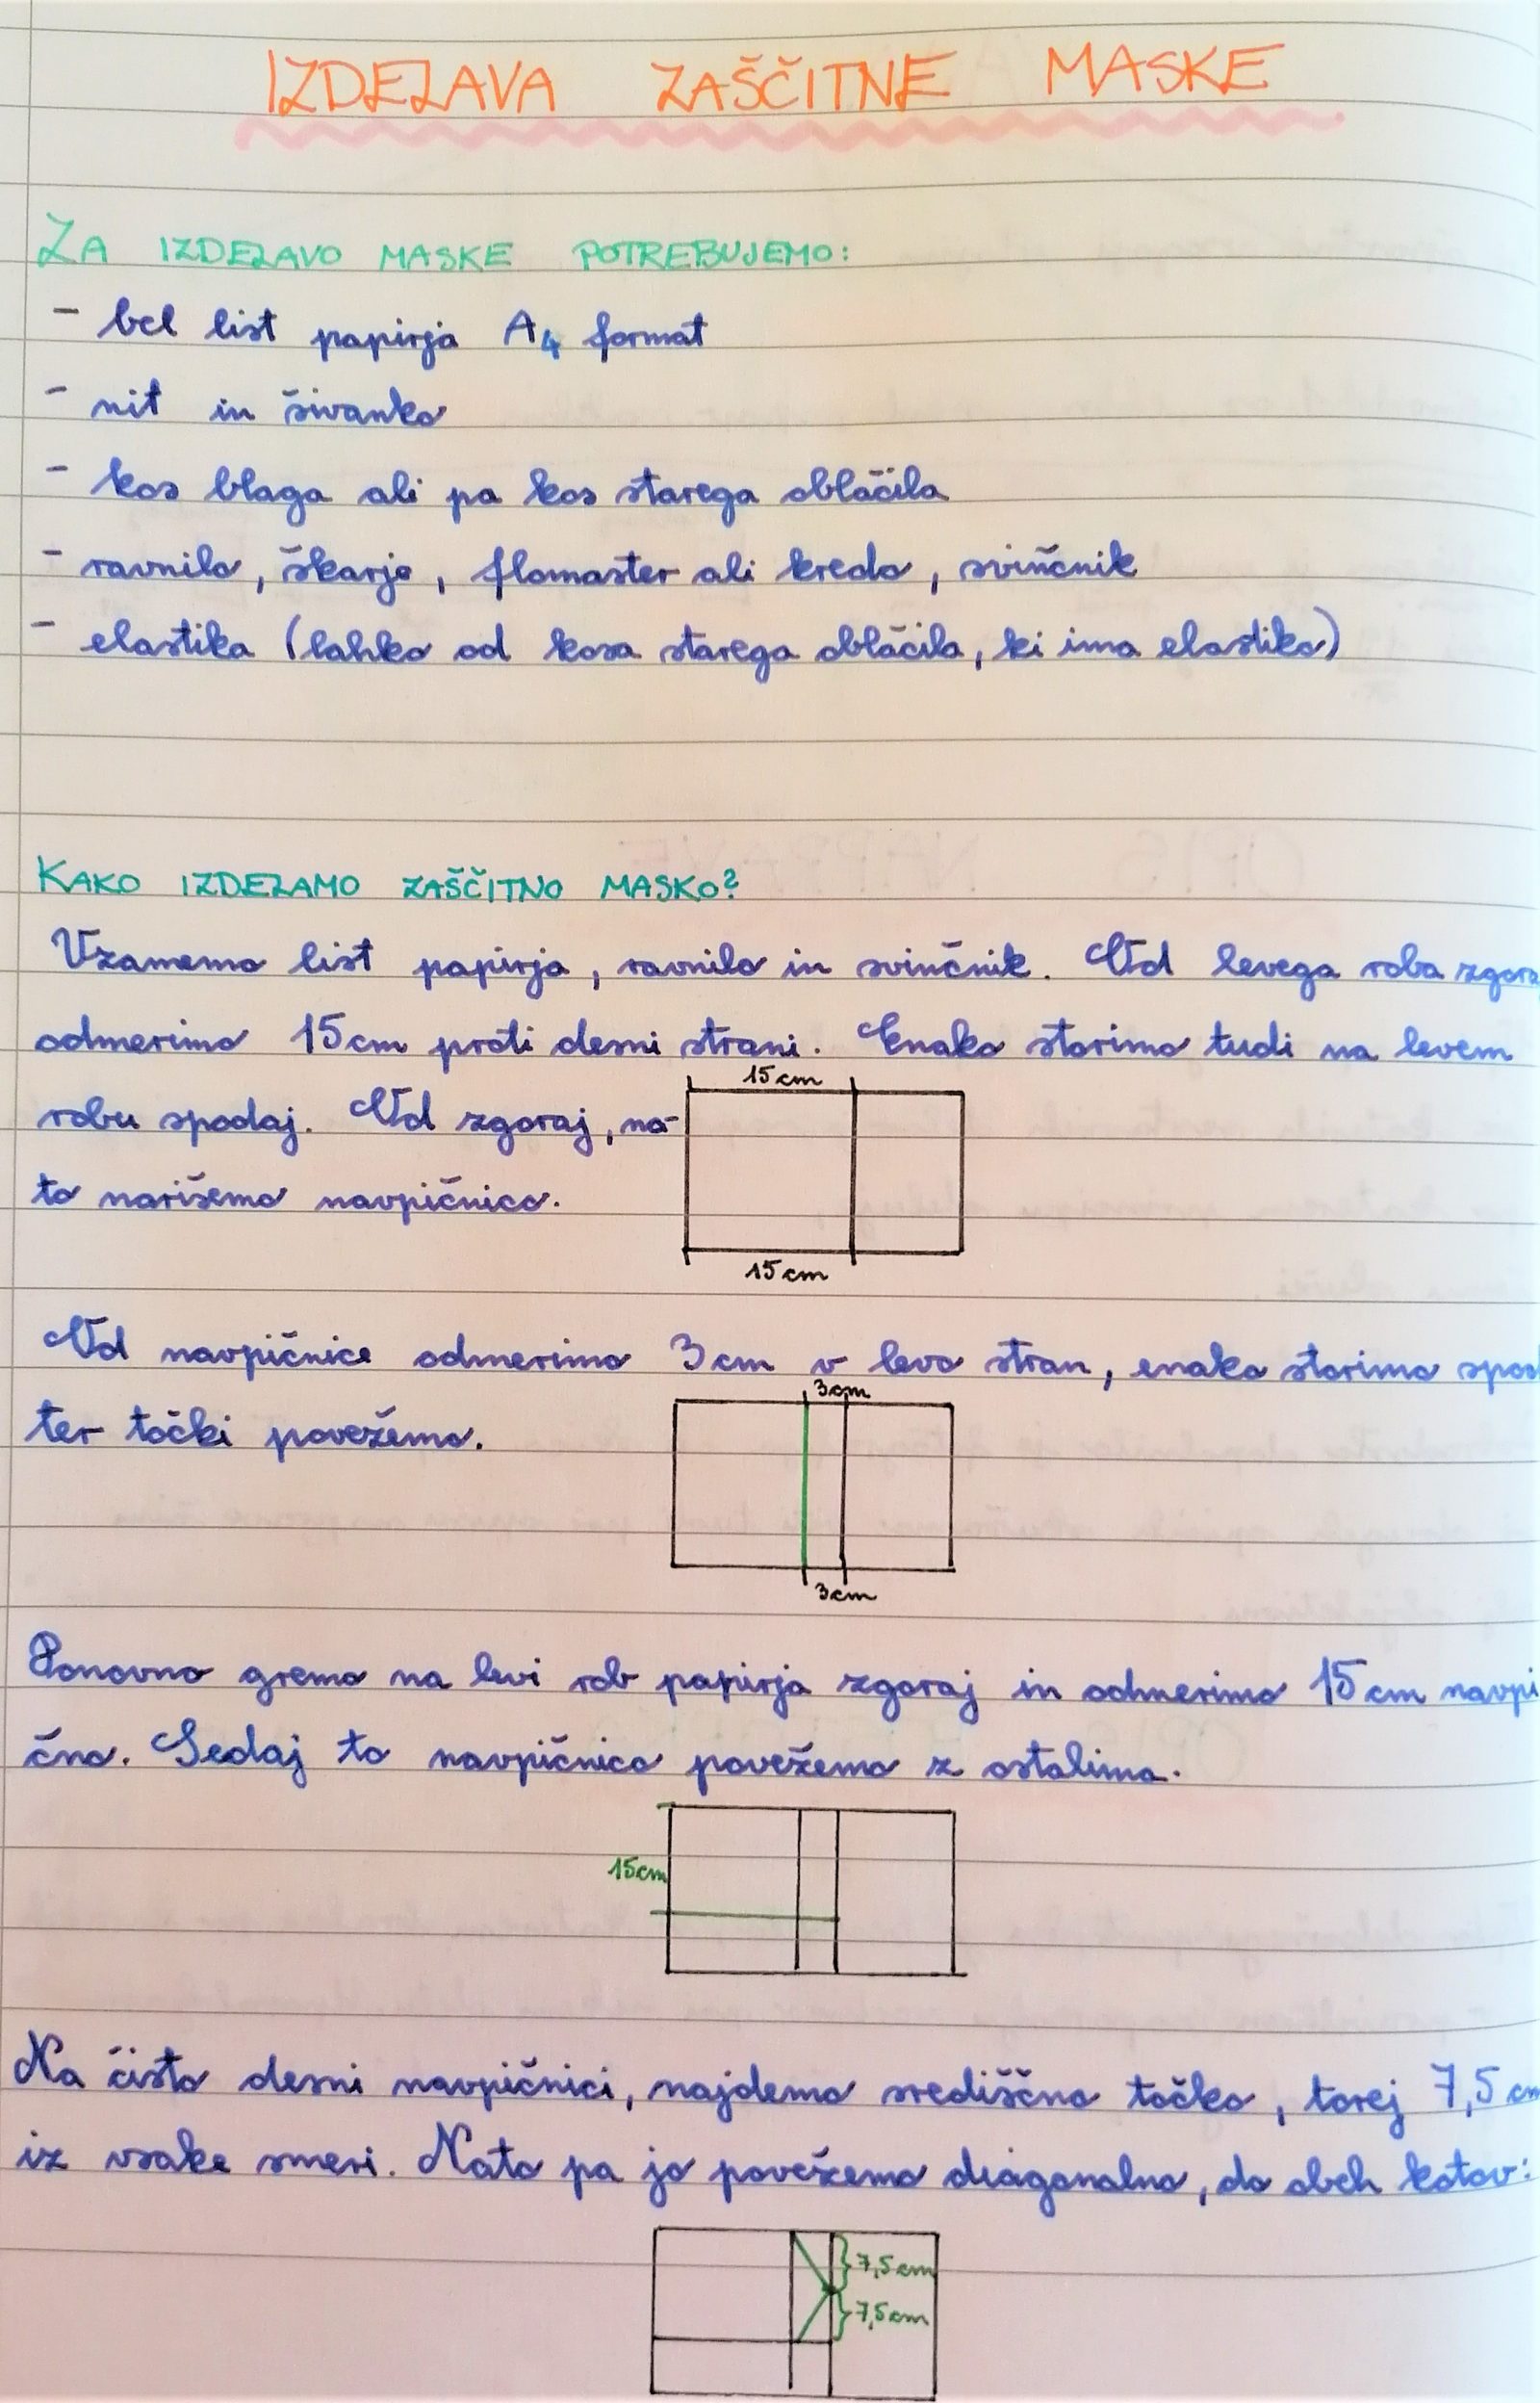 IZDELAVA ZAŠČITNE MASKE
ZA IZDELAVO MASKE POTREBUJEMO:
- bel list papirja A4 format
- nit in šivanko
- kos blaga ali pa kos starega oblačila
- ravnilo, škarje, flomaster ali kredo, svinčnik
- elastika (lahko od kosa starega oblačila, ki ima elastiko)
KAKO IZDELAMO ZAŠČITNO MASKO?
Vzamemo list papirja, ravnilo in svinčnik. Od levega roba zgoraj
odmerimo 15cm proti desni strani. Enako storimo tudi na levem
15cm
robu spodaj. Od zgoraj, na-
to narišemo navpičnico.
15cm
Od navpičnice odmerimo 3cm v levo stran, enako storimo spod
3cm
ter točki povežemo.
3cm
Ponovno gremo na levi rob papirja zgoraj in odmerimo 15cm navpi
čno. Sedaj to navpičnico povežemo z ostalima.
15cm
Na čisto desni navpičnici, najdemo središčno točko, torej 7,5 cm
iz vsake smeri. Nato pa jo povežemo diagonalno, do obeh kotov:
7,5cm
7,5cm